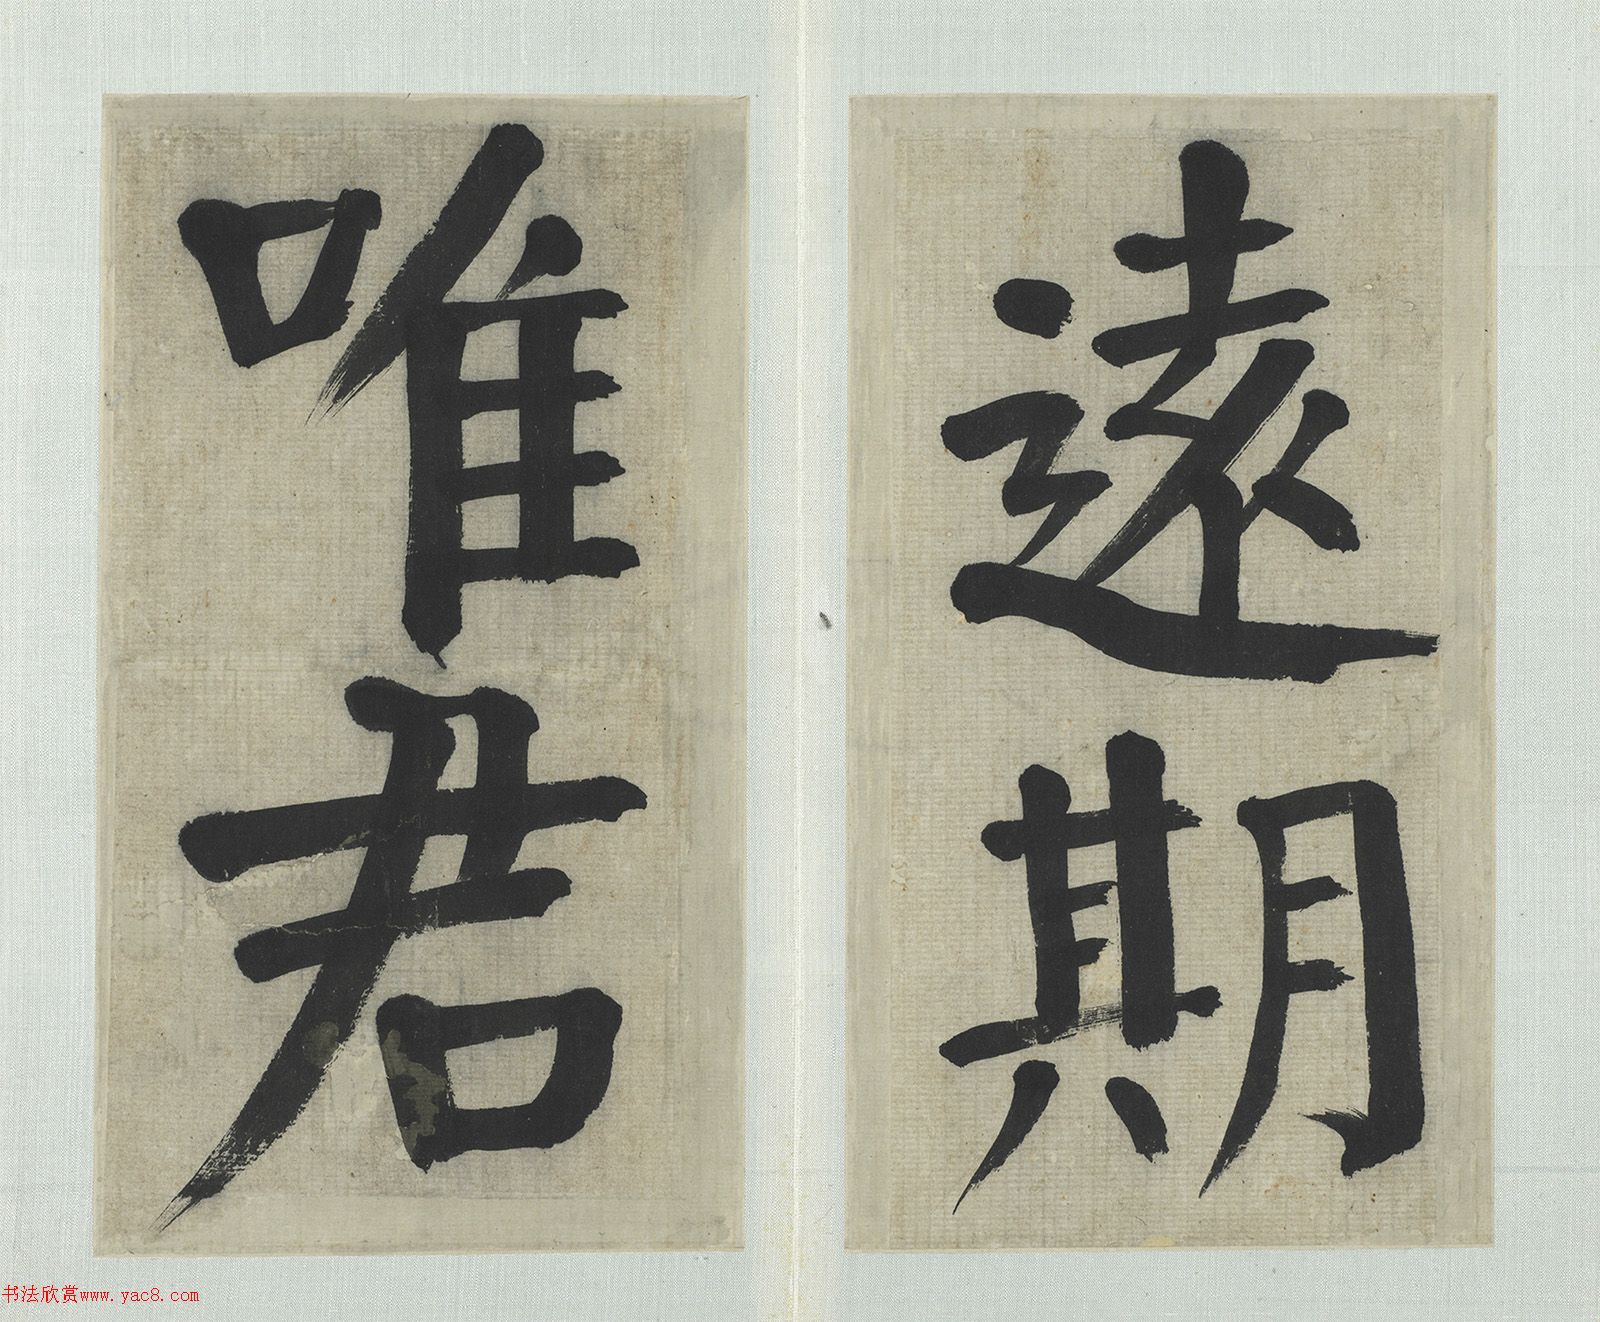 遠期
唯君
书法欣赏www.yac8.com